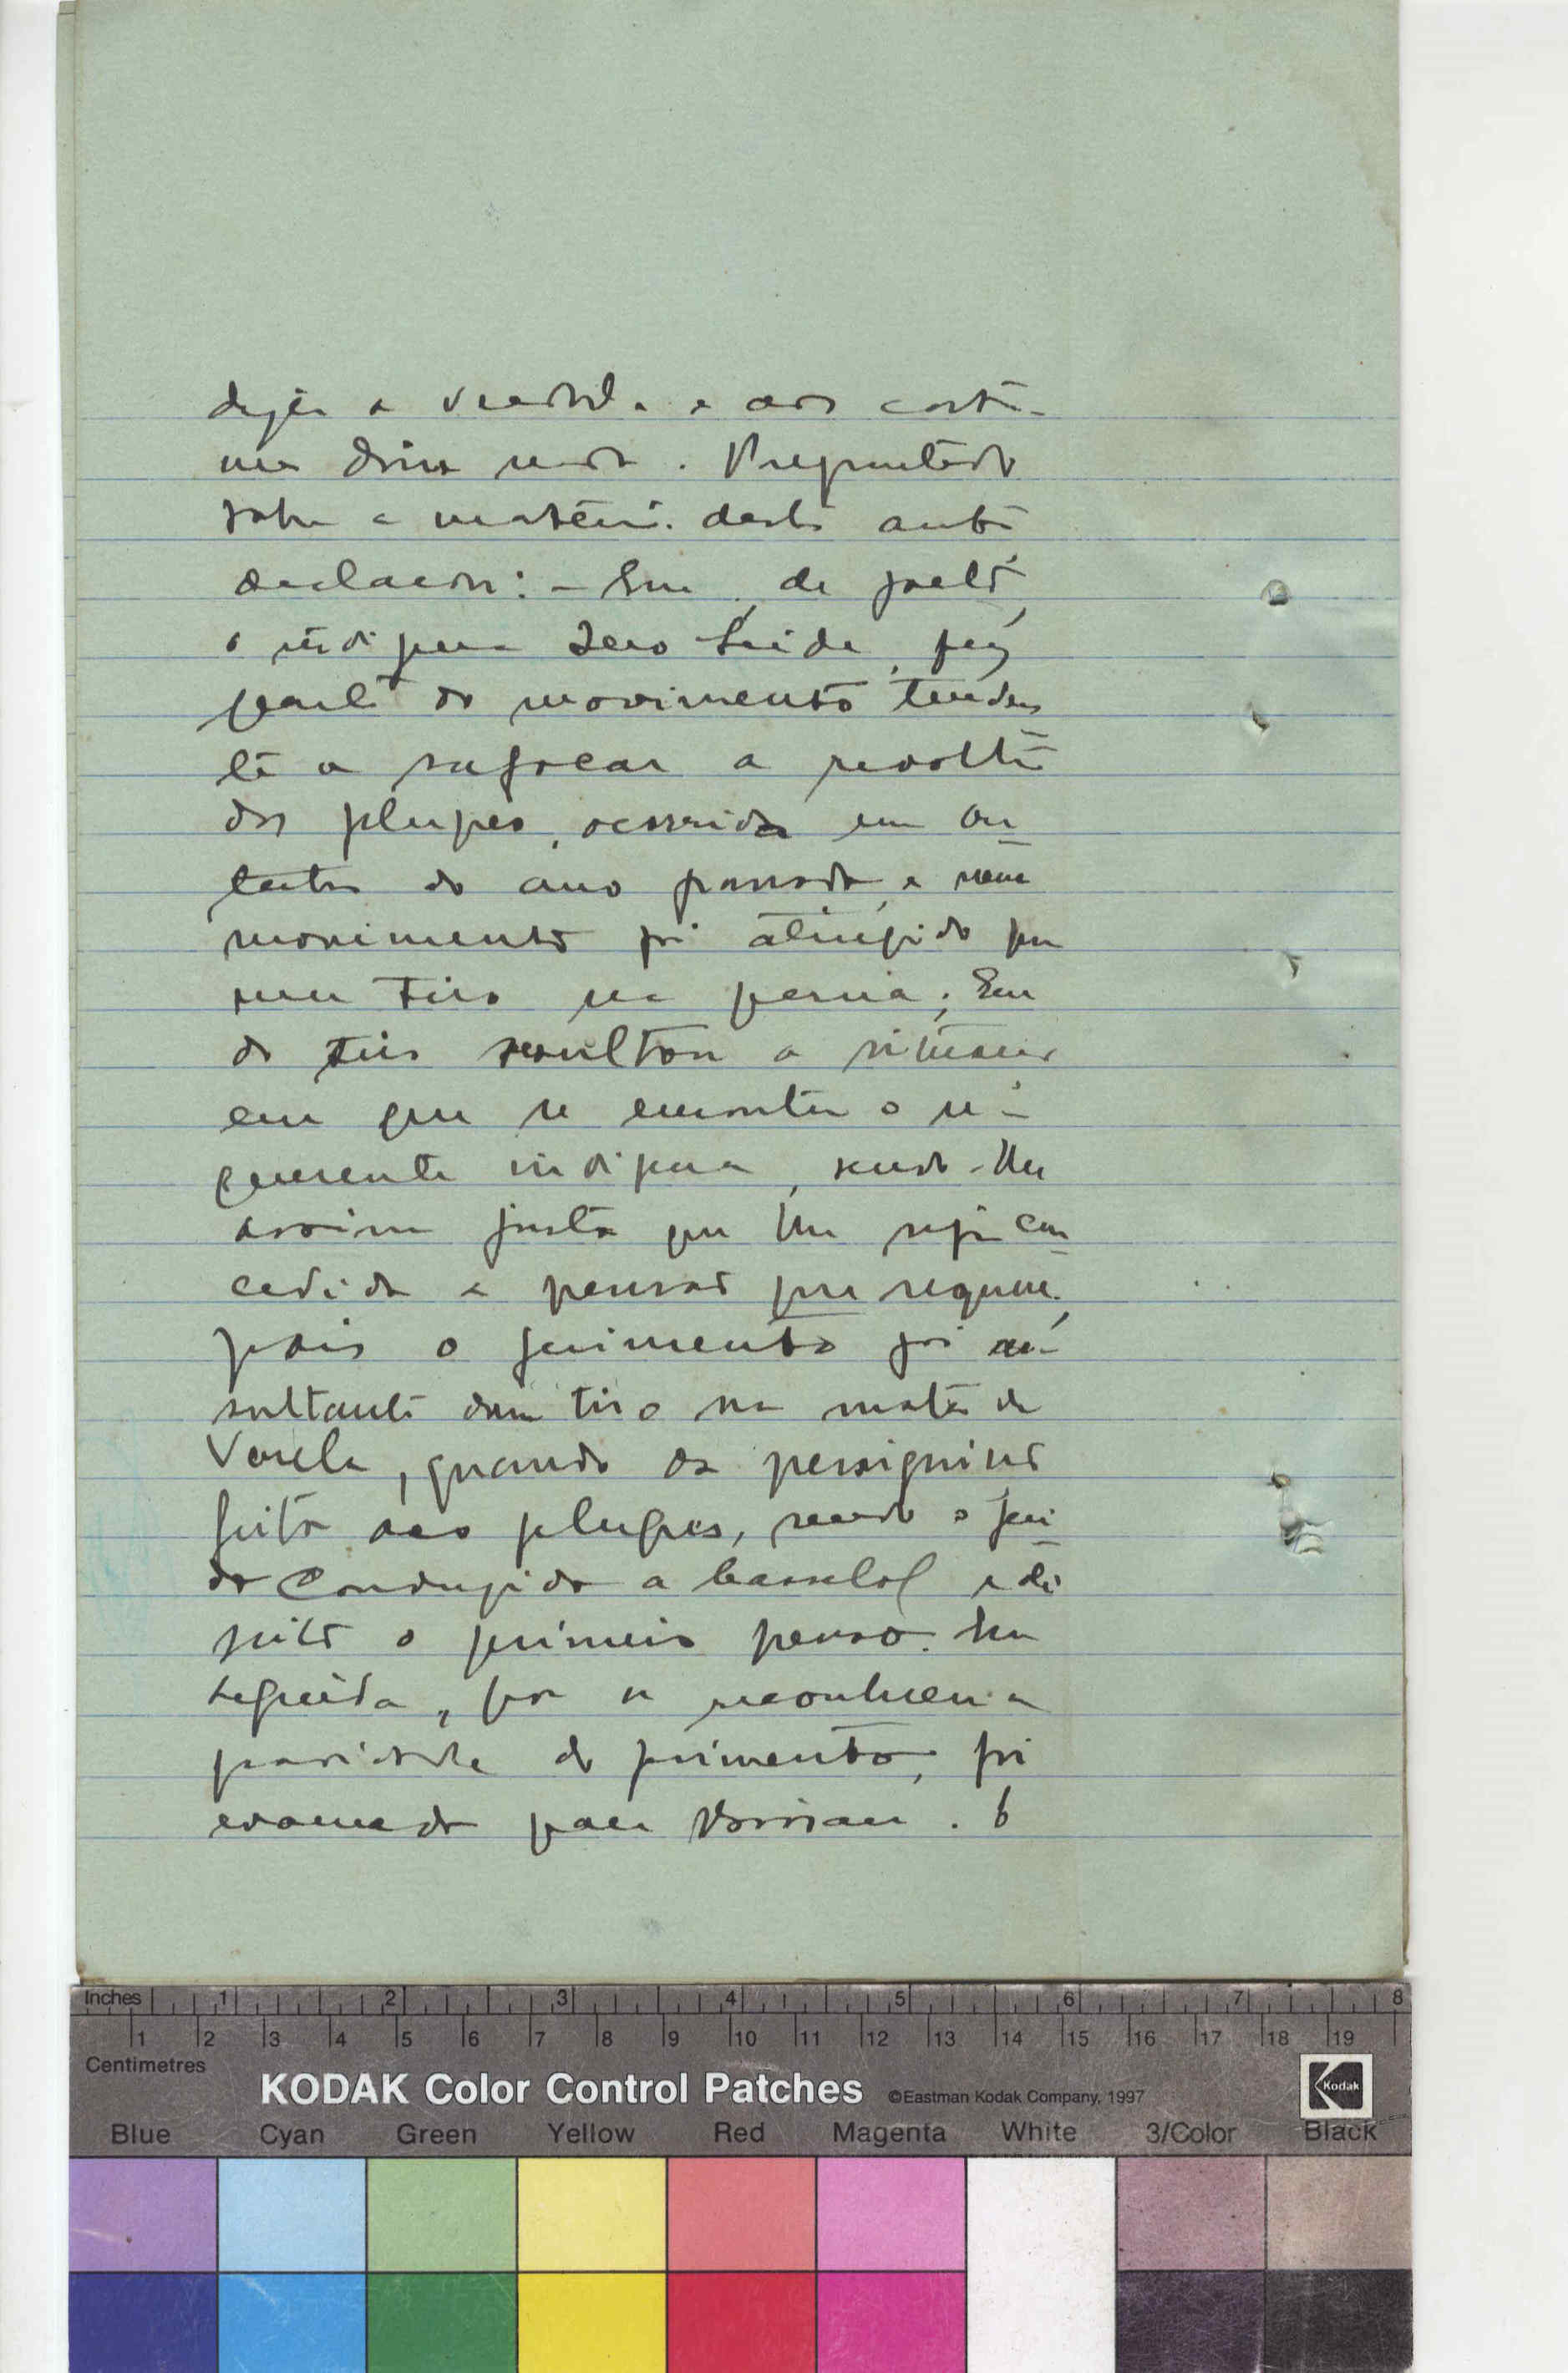 dizer a verdade e aos costu-
mes disse nada. Preguntado
sobre a matéria deste auto
declarou: - Que, de facto,
o indígena Seide, fez
parte do movimento tenden-
te a sufocar a revolta
dos felupes, ocorrida em ou-
tubro do ano passado, e nesse
movimento foi atingido por
um tiro na perna; Que
do tiro resultou a situação
em que se encontra o re-
querente indígena, sendo-lhe
assim justo que lhe seja con-
cedida a pensão que requere,
pois o ferimento foi re-
sultante dum tiro na mata de
Varela, quando da perseguição
feita aos felupes, sendo o feri-
do conduzido a Cassolol e ali
feito o primeiro penso. Em
seguida, por se reconhecer a
gravidade do ferimento, foi
evacuado para Bissau. E
Inches 1 2 3 4 5 6 7 8
1 2 3 4 5 6 7 8 9 10 11 12 13 14 15 16 17 18 19
Centimetres
KODAK Color Control Patches ©Eastman Kodak Company, 1997 Kodak
Blue Cyan Green Yellow Red Magenta White 3/Color Black